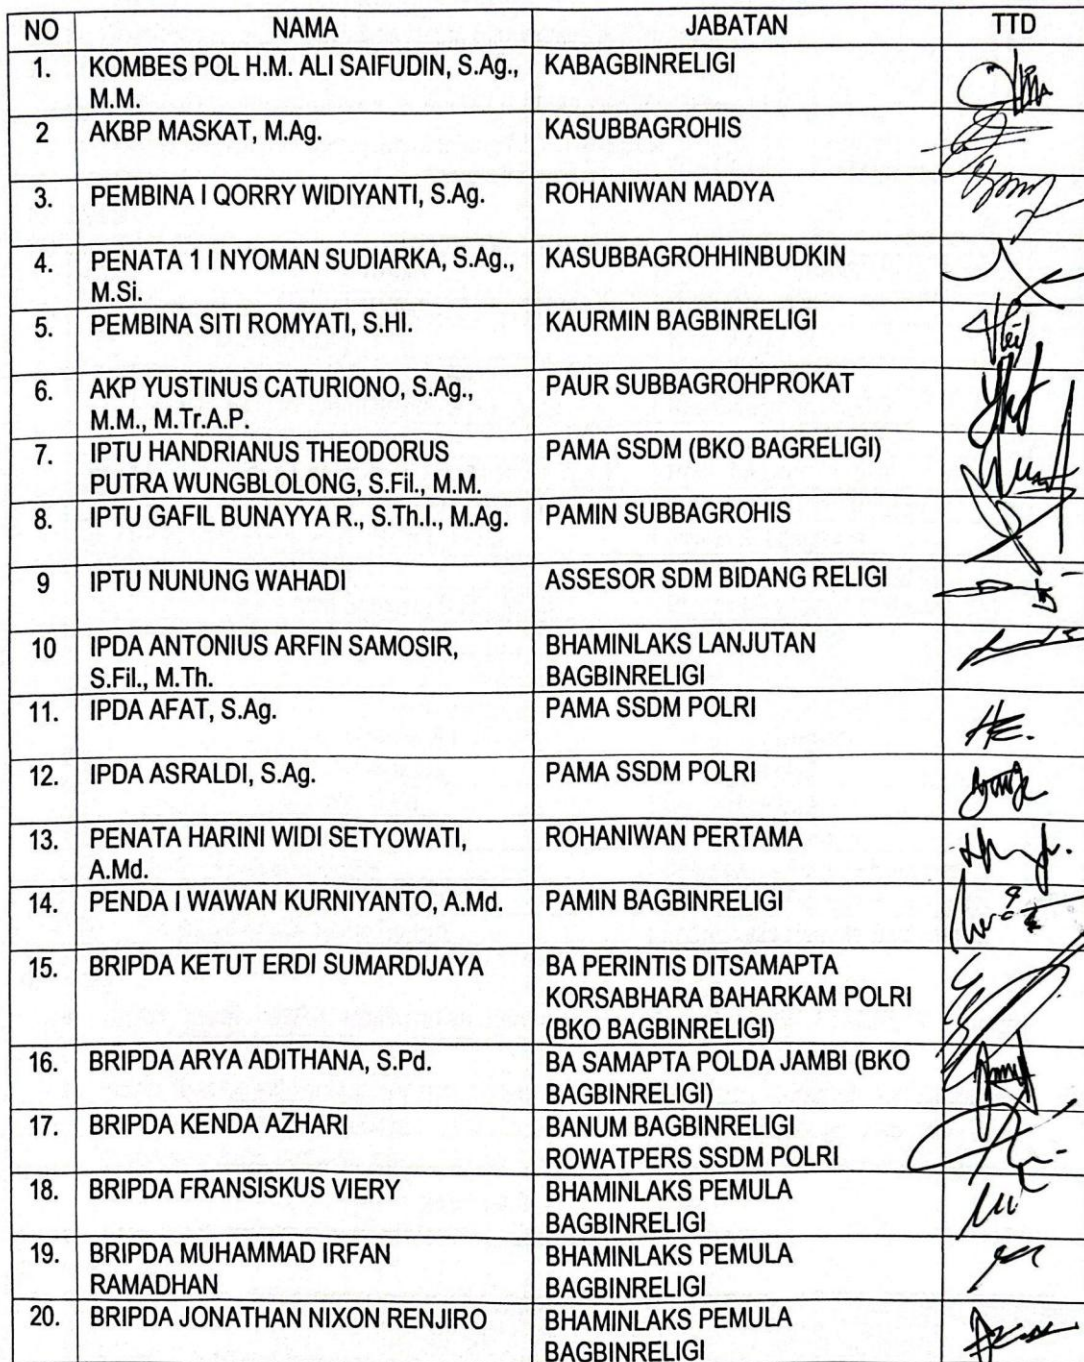 NO NAMA JABATAN TTD
1. KOMBES POL H.M. ALI SAIFUDIN, S.Ag., KABAGBINRELIGI
M.M.
2 AKBP MASKAT, M.Ag. KASUBBAGROHIS
3. PEMBINA I QORRY WIDIYANTI, S.Ag. ROHANIWAN MADYA
4. PENATA 1 I NYOMAN SUDIARKA, S.Ag., KASUBBAGROHHINBUDKIN
M.Si.
5. PEMBINA SITI ROMYATI, S.HI. KAURMIN BAGBINRELIGI
6. AKP YUSTINUS CATURIONO, S.Ag., PAUR SUBBAGROHPROKAT
M.M., M.Tr.A.P.
7. IPTU HANDRIANUS THEODORUS PAMA SSDM (BKO BAGRELIGI)
PUTRA WUNGBLOLONG, S.Fil., M.M.
8. IPTU GAFIL BUNAYYA R., S.Th.I., M.Ag. PAMIN SUBBAGROHIS
9 IPTU NUNUNG WAHADI ASSESOR SDM BIDANG RELIGI
10 IPDA ANTONIUS ARFIN SAMOSIR, BHAMINLAKS LANJUTAN
S.Fil., M.Th. BAGBINRELIGI
11. IPDA AFAT, S.Ag. PAMA SSDM POLRI
12. IPDA ASRALDI, S.Ag. PAMA SSDM POLRI
13. PENATA HARINI WIDI SETYOWATI, ROHANIWAN PERTAMA
A.Md.
14. PENDA I WAWAN KURNIYANTO, A.Md. PAMIN BAGBINRELIGI
15. BRIPDA KETUT ERDI SUMARDIJAYA BA PERINTIS DITSAMAPTA
KORSABHARA BAHARKAM POLRI
(BKO BAGBINRELIGI)
16. BRIPDA ARYA ADITHANA, S.Pd. BA SAMAPTA POLDA JAMBI (BKO
BAGBINRELIGI)
17. BRIPDA KENDA AZHARI BANUM BAGBINRELIGI
ROWATPERS SSDM POLRI
18. BRIPDA FRANSISKUS VIERY BHAMINLAKS PEMULA
BAGBINRELIGI
19. BRIPDA MUHAMMAD IRFAN BHAMINLAKS PEMULA
RAMADHAN BAGBINRELIGI
20. BRIPDA JONATHAN NIXON RENJIRO BHAMINLAKS PEMULA
BAGBINRELIGI